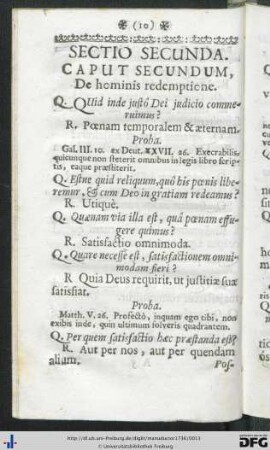 (10)
SECTIO SECUNDA.
CAPUT SECUNDUM,
De hominis redemptione.
Q. QUid inde justô Dei judicio comme-
ruimus?
R. Pœnam temporalem & æternam.
Proba.
Gal. III. 10. ex Deut. XXVII. 26. Execrabilis,
quicunque non steterit omnibus in legis libro scrip-
tis, eaque præstiterit.
Q. Estne quid reliquum, quô his pœnis libe-
remur, & cum Deo in gratiam redeamus?
R Utiquè.
Q. Quænam via illa est, quâ pœnam effu-
gere quimus?
R. Satisfactio omnimoda.
Q. Quare necesse est, satisfactionem omni-
modam fieri?
R Quia Deus requirit, ut justitiæ suæ
satisfiat.
Proba.
Matth. V. 26. Profectò, inquam ego tibi, non
exibis inde, quin ultimum solveris quadrantem.
Q. Per quem satisfactio hæc præstanda est?
R. Aut per nos, aut per quendam
alium.
Pos-
http://dl.ub.uni-freiburg.de/diglit/manuductor1736/0013
© Universitätsbibliothek Freiburg
gefördert durch die
DFG